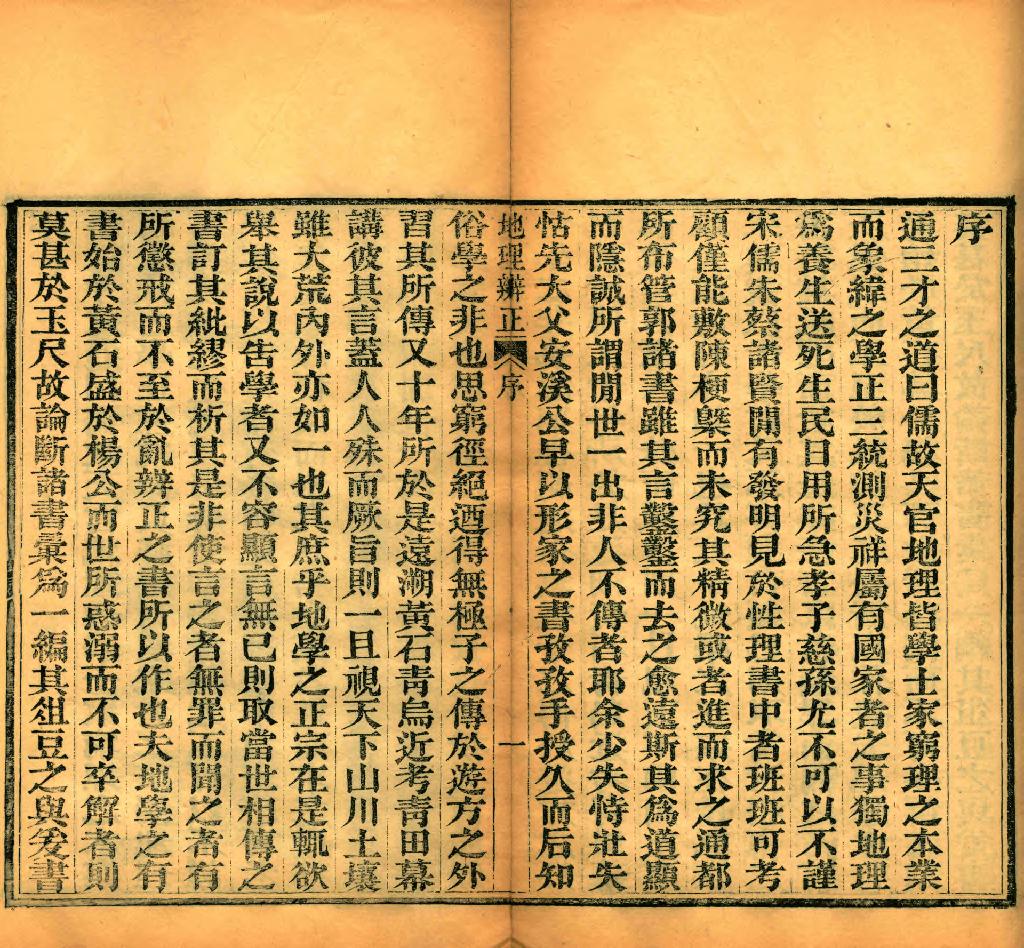 序
通三才之道曰儒故天官地理皆學士家窮理之本業
而象緯之學正三統測災祥屬有國家者之事獨地理
爲養生送死生民日用所急孝子慈孫尤不可以不謹
宋儒朱蔡諸賢閒有發明見於性理書中者班班可考
顧僅能敷陳梗槩而未究其精微或者進而求之通都
所布管郭諸書雖其言鑿鑿而去之愈遠斯其爲道顯
而隱誠所謂閒世一出非人不傳者耶余少失恃壯失
怙先大父安溪公早以形家之書孜孜手授久而后知
地理辨正 序 一
俗學之非也思窮徑絕迺得無極子之傳於遊方之外
習其所傳又十年所於是遠溯黃石靑烏近考靑田幕
講彼其言蓋人人殊而厥旨則一且視天下山川土壤
雖大荒內外亦如一也其庶乎地學之正宗在是輒欲
舉其說以告學者又不容顯言無已則取當世相傳之
書訂其紕繆而析其是非使言之者無罪而聞之者有
所懲戒而不至於亂辨正之書所以作也夫地學之有
書始於黃石盛於楊公而世所惑溺而不可卒解者則
莫甚於玉尺故論斷諸書彙爲一編其俎豆之與爰書